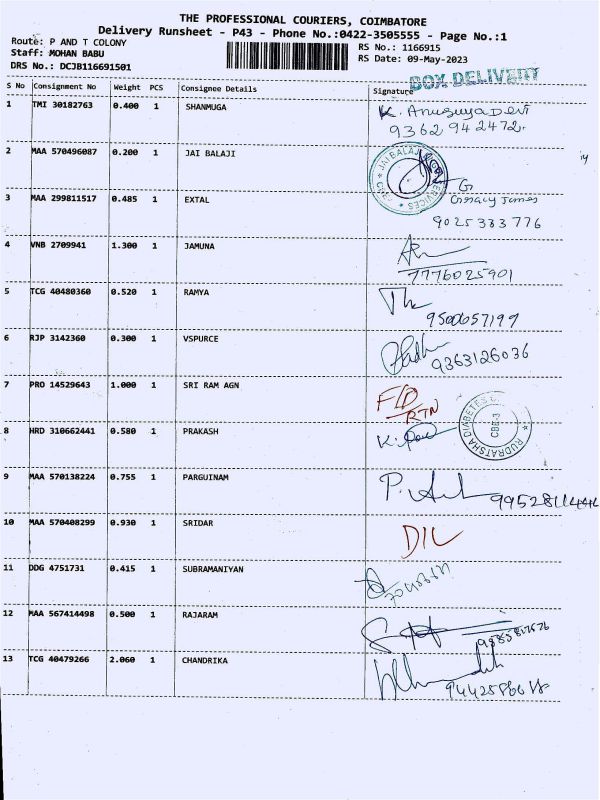 THE PROFESSIONAL COURIERS, COIMBATORE
Delivery Runsheet - P43 - Phone No.:0422-3505555 - Page No.:1
Route: P AND T COLONY
Staff: MOHAN BABU
DRS No.: DCJB116691501
RS No.: 1166915
RS Date: 09-May-2023
BOX DELIVERY
S No Consignment No Weight PCS Consignee Details Signature
1 TMI 30182763 0.400 1 SHANMUGA K. Anusuya Devi
9362942472.
2 MAA 570496087 0.200 1 JAI BALAJI
JAI BALAJI SERVICES
3 MAA 299811517 0.485 1 EXTAL
9025333776
4 VNB 2709941 1.300 1 JAMUNA
7776025901
5 TCG 40480360 0.520 1 RAMYA
9500657199
6 RJP 3142360 0.300 1 VSPURCE
9363126036
7 PRO 14529643 1.000 1 SRI RAM AGN F/D
RTN
RUDRATSHA DIABETES
CBE-3
8 HRD 310662441 0.580 1 PRAKASH
9 MAA 570138224 0.755 1 PARGUINAM
10 MAA 570408299 0.930 1 SRIDAR D/L
11 DDG 4751731 0.415 1 SUBRAMANIYAN
12 MAA 567414498 0.500 1 RAJARAM
13 TCG 40479266 2.060 1 CHANDRIKA